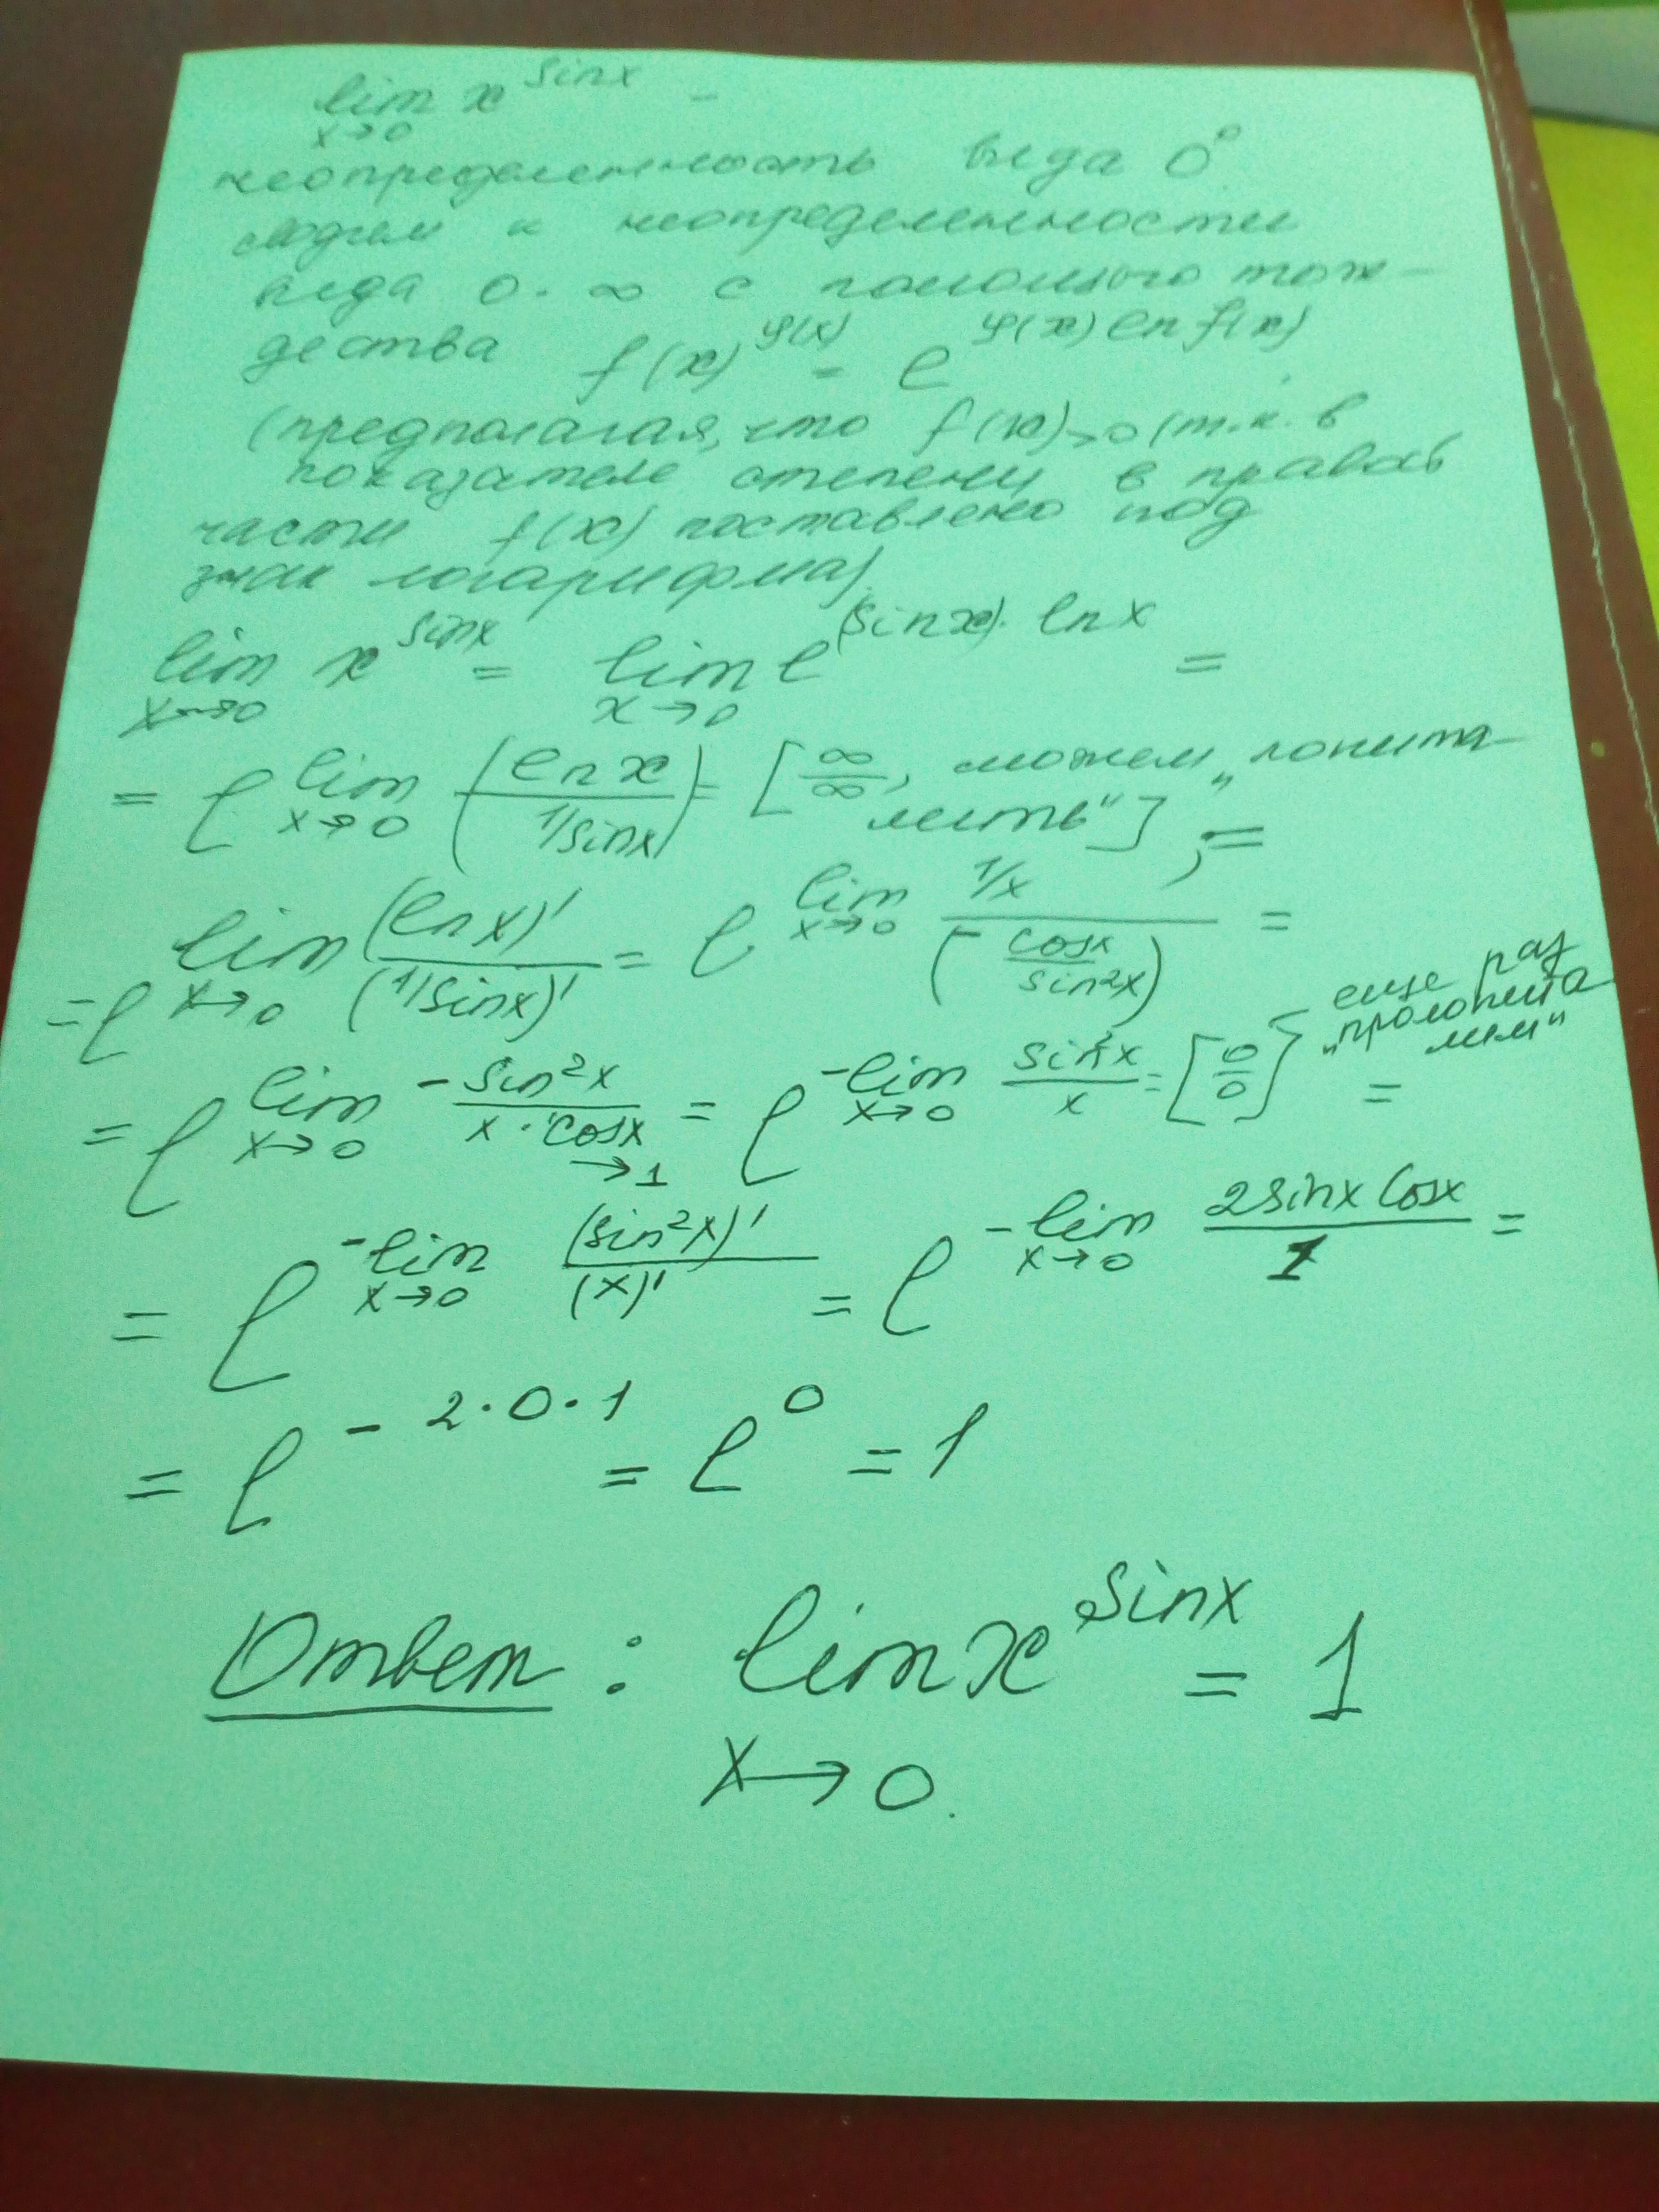 lim x^sinx -
x→0
неопределенность вида 0^0
сводим к неопределенности
вида 0·∞ с помощью тож-
дества f(x)^φ(x) = e^φ(x) ln f(x)
(предполагая, что f(x)>0 (т.к. в
показателе степени в правой
части f(x) поставлено под
знак логарифма).
lim x→0 x^sinx = lim x→0 e^(sinx)·lnx =
= e^lim x→0 (lnx / 1/sinx) = [∞/∞, можем „лопита-
лить“], =
= e^lim x→0 (lnx)' / (1/sinx)' = e^lim x→0 1/x / (- cosx / sin²x) =
= e^lim x→0 - sin²x / x·cosx →1 = e^-lim x→0 sin²x / x = [0/0] еще раз „пролопита лим“ =
= e^-lim x→0 (sin²x)' / (x)' = e^-lim x→0 2sinx cosx / 1 =
= e^-2·0·1 = e^0 = 1
Ответ: lim x^sinx = 1
x→0.